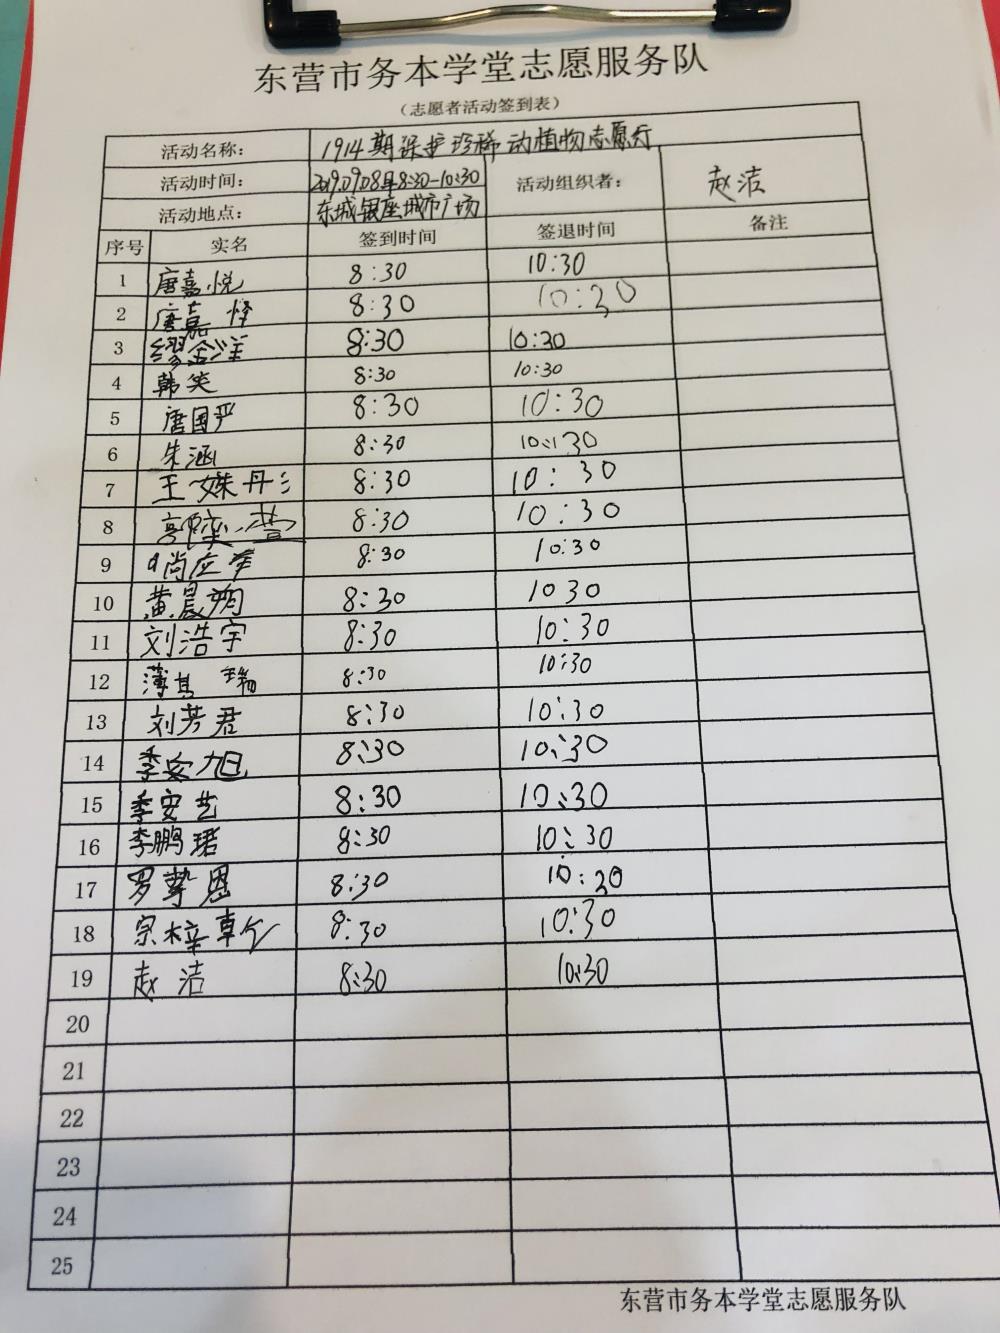 东营市务本学堂志愿服务队
（志愿者活动签到表）
活动名称： 1914期保护珍稀动植物志愿行
活动时间： 2019.09.08 8:30-10:30 活动组织者： 赵洁
活动地点： 东城银座城市广场
序号 实名 签到时间 签退时间 备注
1 唐嘉悦 8:30 10:30
2 唐嘉怿 8:30 10:30
3 缪金洋 8:30 10:30
4 韩笑 8:30 10:30
5 唐国严 8:30 10:30
6 朱涵 8:30 10:30
7 王姝丹 8:30 10:30
8 8:30 10:30
9 尚应 8:30 10:30
10 黄晨翔 8:30 10 30
11 刘浩宇 8:30 10:30
12 薄其瑞 8:30 10:30
13 刘芳君 8:30 10:30
14 季安旭 8:30 10:30
15 季安艺 8:30 10:30
16 李鹏珺 8:30 10:30
17 罗挚恩 8:30 10:30
18 宗梓 8:30 10:30
19 赵洁 8:30 10:30
20
21
22
23
24
25
东营市务本学堂志愿服务队